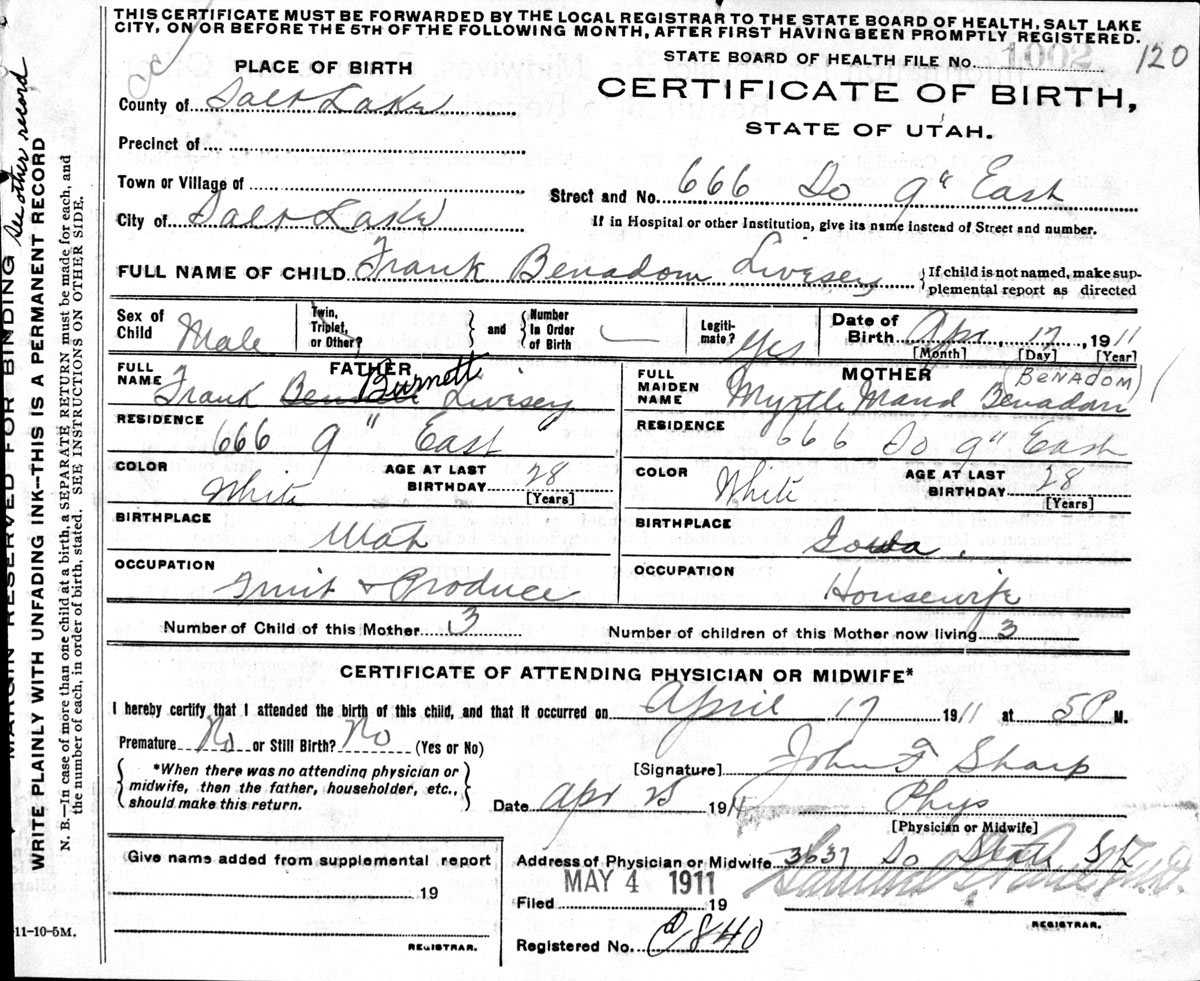 THIS CERTIFICATE MUST BE FORWARDED BY THE LOCAL REGISTRAR TO THE STATE BOARD OF HEALTH, SALT LAKE
CITY, ON OR BEFORE THE 5TH OF THE FOLLOWING MONTH, AFTER FIRST HAVING BEEN PROMPTLY REGISTERED.
STATE BOARD OF HEALTH FILE No. 1002 120
PLACE OF BIRTH
CERTIFICATE OF BIRTH,
STATE OF UTAH.
County of Salt Lake
Precinct of
Town or Village of
Street and No. 666 So 9" East
City of Salt Lake
If in Hospital or other Institution, give its name instead of Street and number.
FULL NAME OF CHILD Frank Benadom Livesey
If child is not named, make sup-
plemental report as directed
Sex of Child Male
Twin, Triplet, or Other? and Number In Order of Birth
Legiti-mate? Yes
Date of Birth Apr. 17, 1911
[Month] [Day] [Year]
FATHER
FULL NAME Frank Burnett Livesey
RESIDENCE 666 9" East
COLOR White
AGE AT LAST BIRTHDAY 28
[Years]
BIRTHPLACE Utah
OCCUPATION Fruit & Produce
MOTHER
(BENADOM)
FULL MAIDEN NAME Myrtle Maud Benadom
RESIDENCE 666 So 9" East
COLOR White
AGE AT LAST BIRTHDAY 28
[Years]
BIRTHPLACE Iowa.
OCCUPATION Housewife
Number of Child of this Mother 3
Number of children of this Mother now living 3
CERTIFICATE OF ATTENDING PHYSICIAN OR MIDWIFE*
I hereby certify that I attended the birth of this child, and that it occurred on April 17 1911 at 5 P M.
Premature No or Still Birth? No (Yes or No)
*When there was no attending physician or
midwife, then the father, householder, etc.,
should make this return.
[Signature] John F Sharp
Date Apr 25 1911 Phys
[Physician or Midwife]
Give name added from supplemental report
19
REGISTRAR.
Address of Physician or Midwife 3637 So State St
MAY 4 1911
Filed 19
REGISTRAR.
Registered No. 840
11-10-5M.
MARGIN RESERVED FOR BINDING
See other record
WRITE PLAINLY WITH UNFADING INK—THIS IS A PERMANENT RECORD
N. B.—In case of more than one child at a birth, a SEPARATE RETURN must be made for each, and
the number of each, in order of birth, stated. SEE INSTRUCTIONS ON OTHER SIDE.